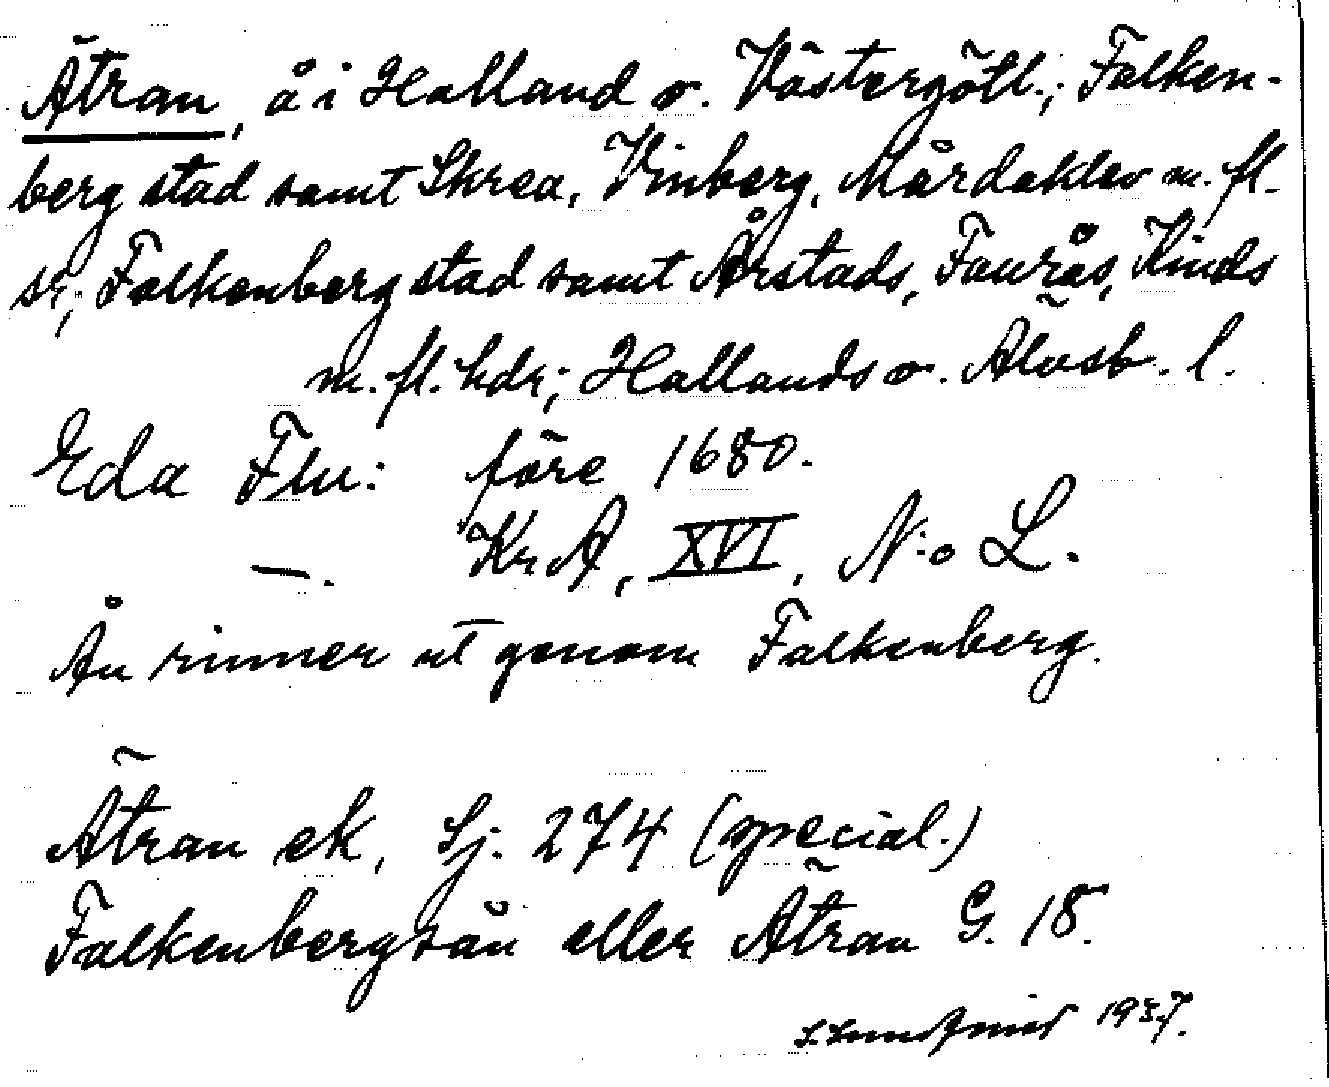 Ätran, å i Halland o. Västergötl.; Falken-
berg stad samt Skrea, Vinberg, Mårdaklev m. fl.
sr; Falkenberg stad samt Årstads, Faurås, Kinds
m. fl. hdr; Hallands o. Älvsb. l.
Eda Flu: före 1680.
—. KrA, XVI, N:o L.
Ån rinner ut genom Falkenberg.
Ätran ek, Sj. 274 (special.)
Falkenbergsån eller Ätran G. 18.
1937.